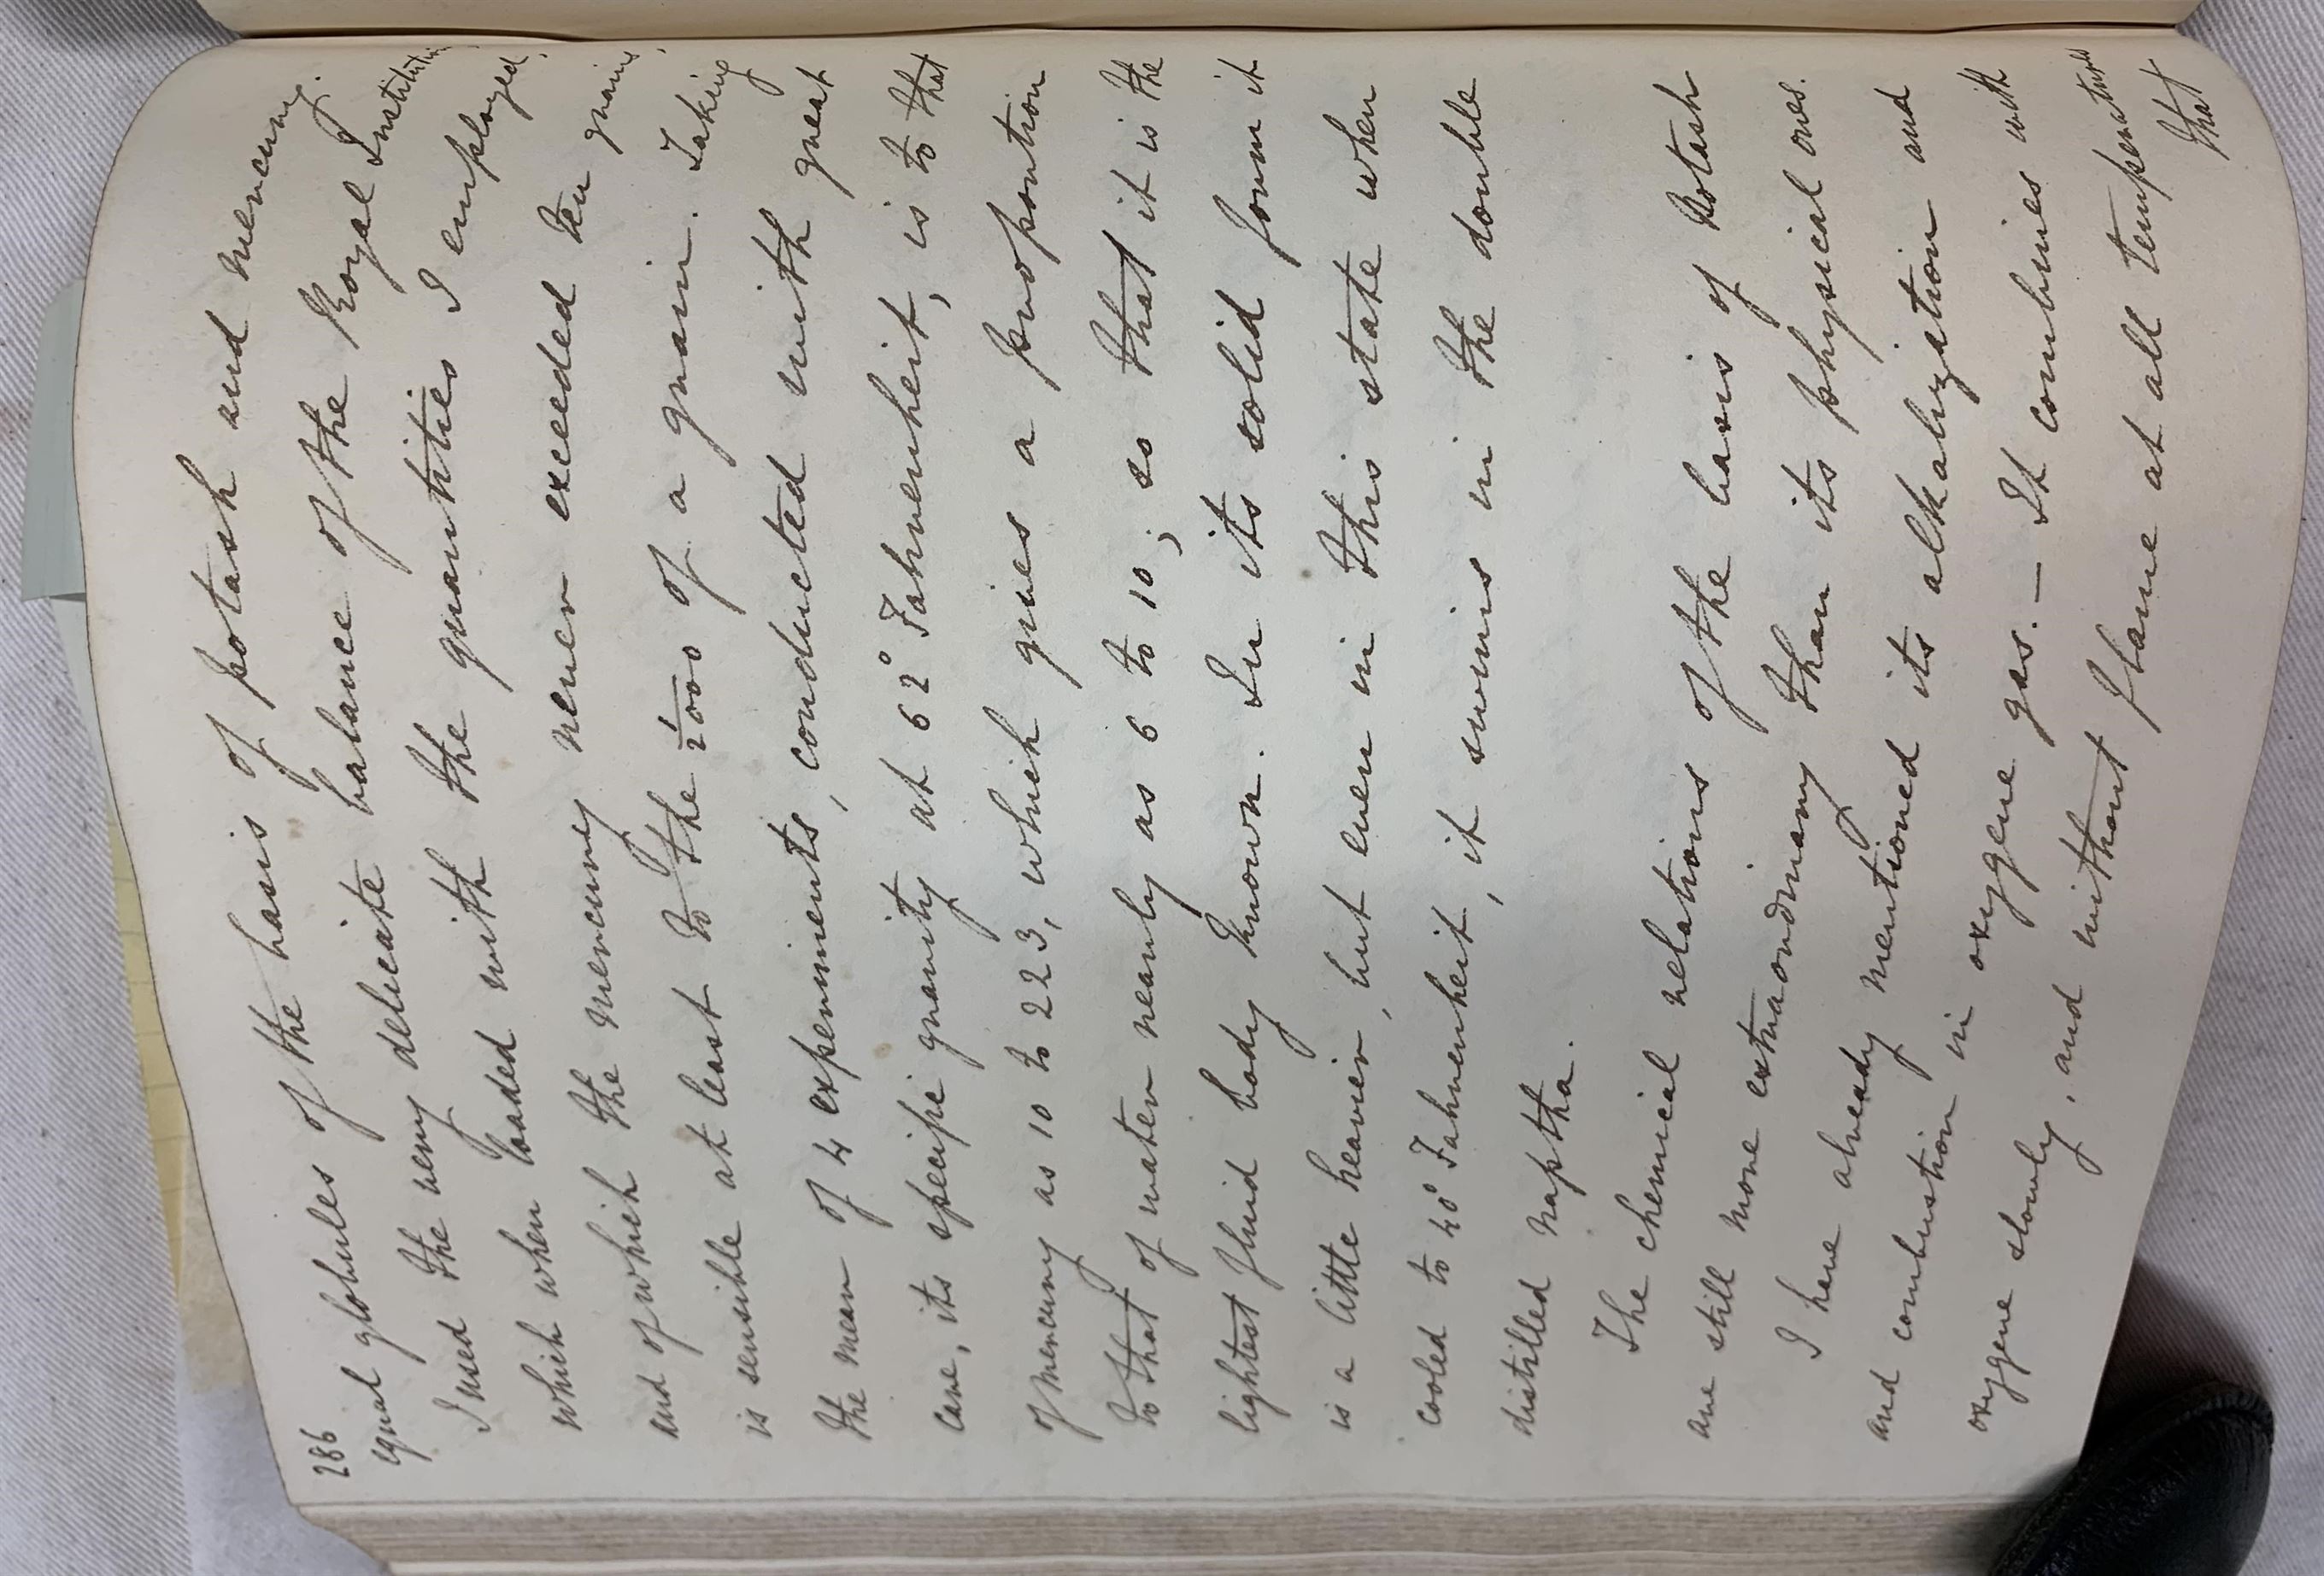 286
equal globules of the basis of potash and mercury.
I used the very delicate balance of the Royal Institution,
which when loaded with the quantities I employed,
and of which the mercury never exceeded ten grains,
is sensible at least to the 1/2000 of a grain. Taking
the mean of 4 experiments, conducted with great
care, its specific gravity at 62° Fahrenheit, is to that
of mercury as 10 to 223, which gives a proportion
to that of water nearly as 6 to 10; so that it is the
lightest fluid body known. In its solid form it
is a little heavier, but even in this state when
cooled to 40° Fahrenheit, it swims in the double
distilled naptha.
The chemical relations of the basis of Potash
are still more extraordinary than its physical ones.
I have already mentioned its alkalization and
and combustion in oxygene gas. — It combines with
oxygene slowly, and without flame at all temperatures
that